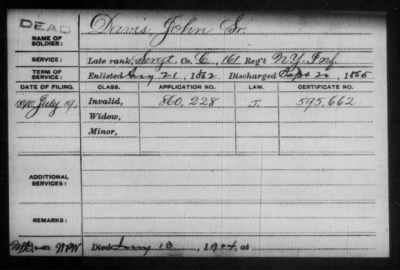 DEAD
NAME OF SOLDIER: Davis, John Sr.
SERVICE: Late rank, Sergt, Co. C, 161 Reg't N.Y. Inf.
TERM OF SERVICE: Enlisted Aug 21, 1862 Discharged Sept 20, 1865
DATE OF FILING. CLASS. APPLICATION NO. LAW. CERTIFICATE NO.
1890, July 19. Invalid, 860,228 J. 595,662
Widow,
Minor,
ADDITIONAL SERVICES:
REMARKS:
Died 10, 1904, at